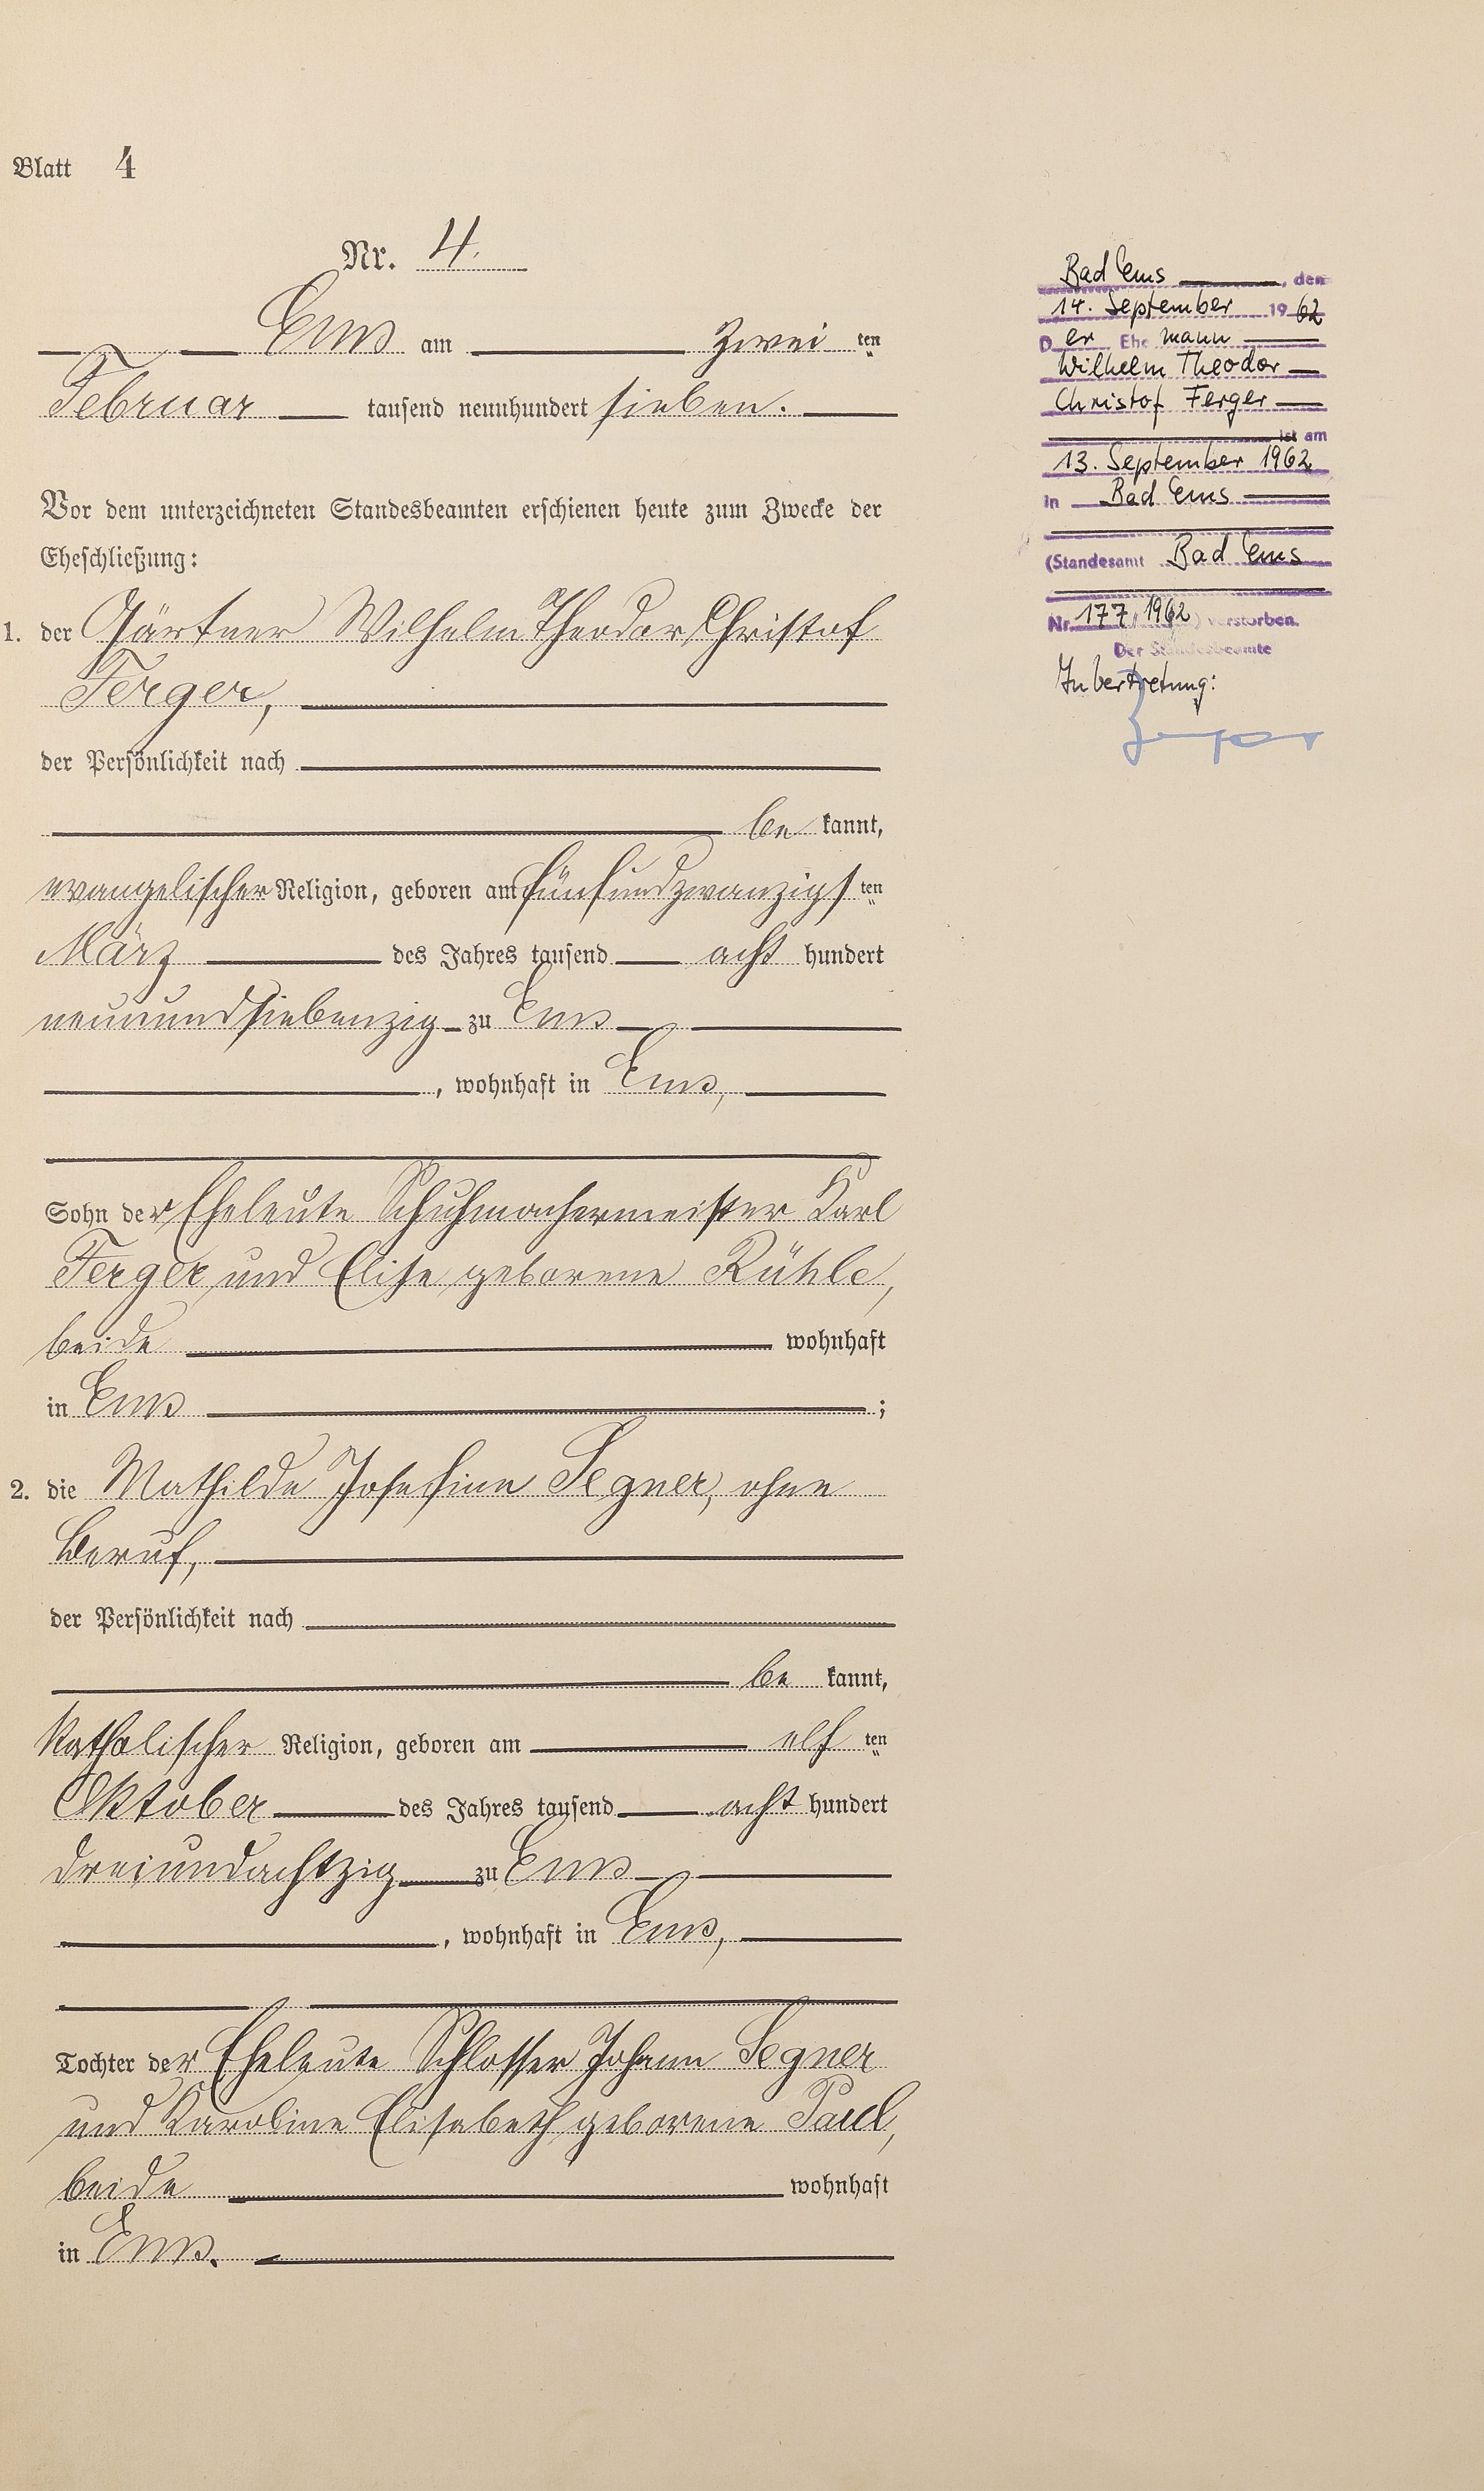 Blatt 4
Nr. 4.
Ems am zwei ten
Februar tausend neunhundert sieben.
Vor dem unterzeichneten Standesbeamten erschienen heute zum Zwecke der
Eheschließung:
1. der Gärtner Wilhelm Theodor Christof
Ferger,
der Persönlichkeit nach
be kannt,
evangelischer Religion, geboren am fünfundzwanzigs ten
März des Jahres tausend acht hundert
neunundsiebenzig zu Ems
, wohnhaft in Ems,
Sohn der Eheleute Schuhmachermeister Karl
Ferger und Elise geborene Rühle,
beide wohnhaft
in Ems ;
2. die Mathilde Josefine Segner, ohne
Beruf,
der Persönlichkeit nach
be kannt,
katholischer Religion, geboren am elf ten
Oktober des Jahres tausend acht hundert
dreiundachtzig zu Ems
, wohnhaft in Ems,
Tochter der Eheleute Schlosser Johann Segner
und Karoline Elisabeth geborene Paul,
beide wohnhaft
in Ems.
Bad Ems , den
14. September 1962
Der Ehemann
Wilhelm Theodor
Christof Ferger
ist am
13. September 1962
in Bad Ems
(Standesamt Bad Ems
Nr. 177/1962) verstorben.
Der Standesbeamte
In Vertretung: